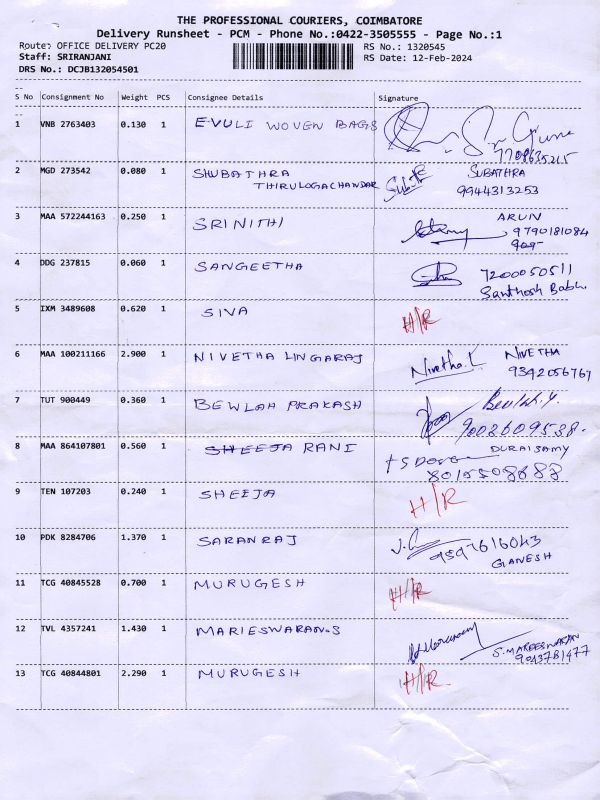 THE PROFESSIONAL COURIERS, COIMBATORE
Delivery Runsheet - PCM - Phone No.:0422-3505555 - Page No.:1
Route: OFFICE DELIVERY PC20 RS No.: 1320545
Staff: SRIRANJANI RS Date: 12-Feb-2024
DRS No.: DCJB132054501
S No Consignment No Weight PCS Consignee Details Signature
1 VNB 2763403 0.130 1 EVULI WOVEN BAGS
7708635215
2 MGD 273542 0.080 1 SHUBATHRA SUBATHRA
THIRULOGACHANDAR 9944313253
3 MAA 572244163 0.250 1 SRINITHI ARUN
9790181084
4 DDG 237815 0.060 1 SANGEETHA 7200050511
Santhosh Babu
5 IXM 3489608 0.620 1 SIVA H/R
6 MAA 100211166 2.900 1 NIVETHA LINGARAJ Nivetha.L NIVETHA
9342056767
7 TUT 900449 0.360 1 BEWLAH PRAKASH Beulah.y.
9002609538.
8 MAA 864107801 0.560 1 SHEEJA RANI DURAISAMY
8015508688
9 TEN 107203 0.240 1 SHEEJA H/R
10 PDK 8284706 1.370 1 SARANRAJ 9597616043
GANESH
11 TCG 40845528 0.700 1 MURUGESH H/R
12 TVL 4357241 1.430 1 MARIESWARAN.S S.MAREESWARAN
9043781477
13 TCG 40844801 2.290 1 MURUGESH H/R